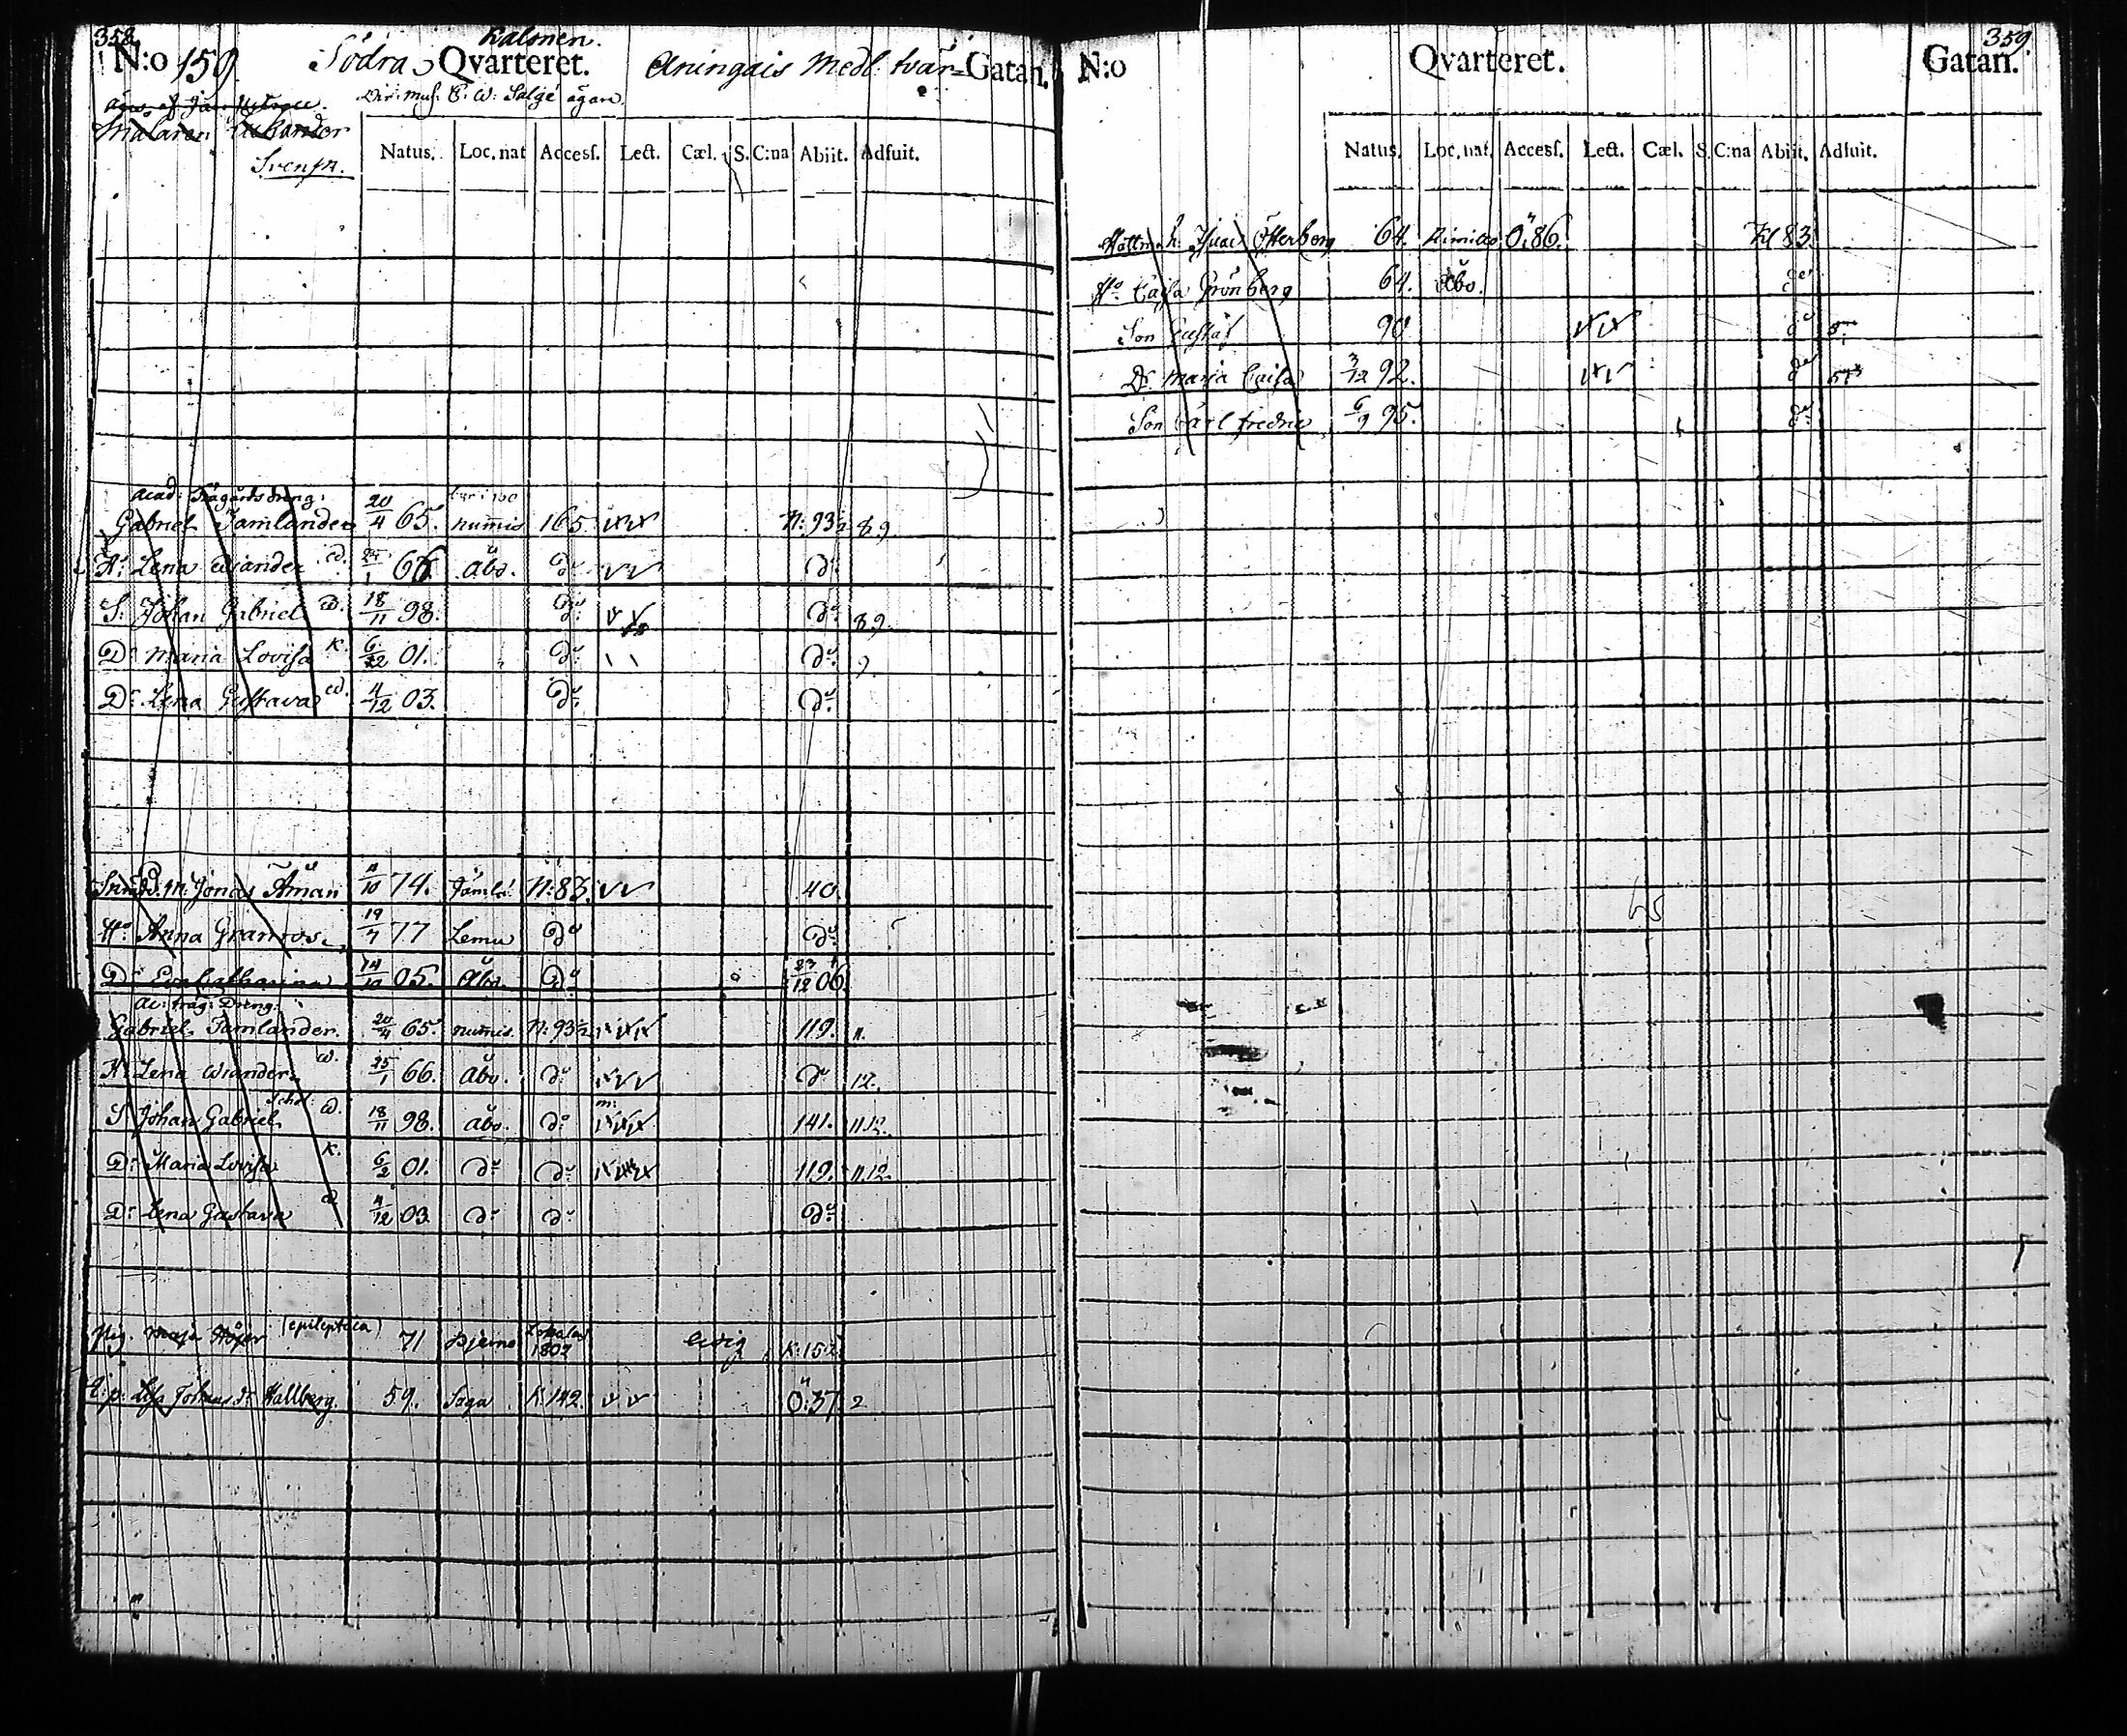 358.
N:o 159 Södra Qvarteret. Aningais Medl. tvär=Gatan.
Dir: Mus: C: W: Salge ägare.
Målaren
Svensk.
Natus. Loc. nat Accesf. Lect. Cæl. S. C:na Abiit. Adfuit.
Acad: Trägårds dreng:
Gabriel Tamlander 20/4 65. numis 165 N: 93½ 89.
H: Lena Wiander W. 25/1 66 Åbo. do do
S: Johan Gabriel W. 18/11 98. do do 89.
Dr Maria Lovisa K. 01. do do 9
Dr Lena Gustava W. 4/12 03. do do
Jonas Åman 4/10 74. N: 83. 40.
Ho Anna Granroos 19/7 77 Lemu do do
Dr Eva Catharina 05. Åbo. do 06.
Ac: träg: Dreng:
Gabriel Tamlander. 20/4 65. numis. N: 93½ 119. 11.
H: Lena Wiander W. 25/1 66. Åbo. do do 12.
S: Johan Gabriel Schol: W. 18/11 98. Åbo. do m: 141. 11.12.
Dr Maria Lovisa K. 6/2 01. do do 119. 11.12.
Dr Lena Gustava W. 4/12 03 do do do
Pig. Maja (epileptica) 71 Bjerno 1802 K: 152
Johansdr Hallberg. 59. Saga K. 142 Ö: 37 2
359.
N:o Qvarteret. Gatan.
Natus. Loc. nat. Accesf. Lect. Cæl. S. C:na Abiit. Adfuit.
Isaac Österberg 64. Rimito Ö: 86. Kl 83
Ho Caisa Grönberg 64. Åbo. do
Son Gustaf 90 do
Dr Maria Caisa 3/12 92. do
Son Carl Fredric 6/9 95. do